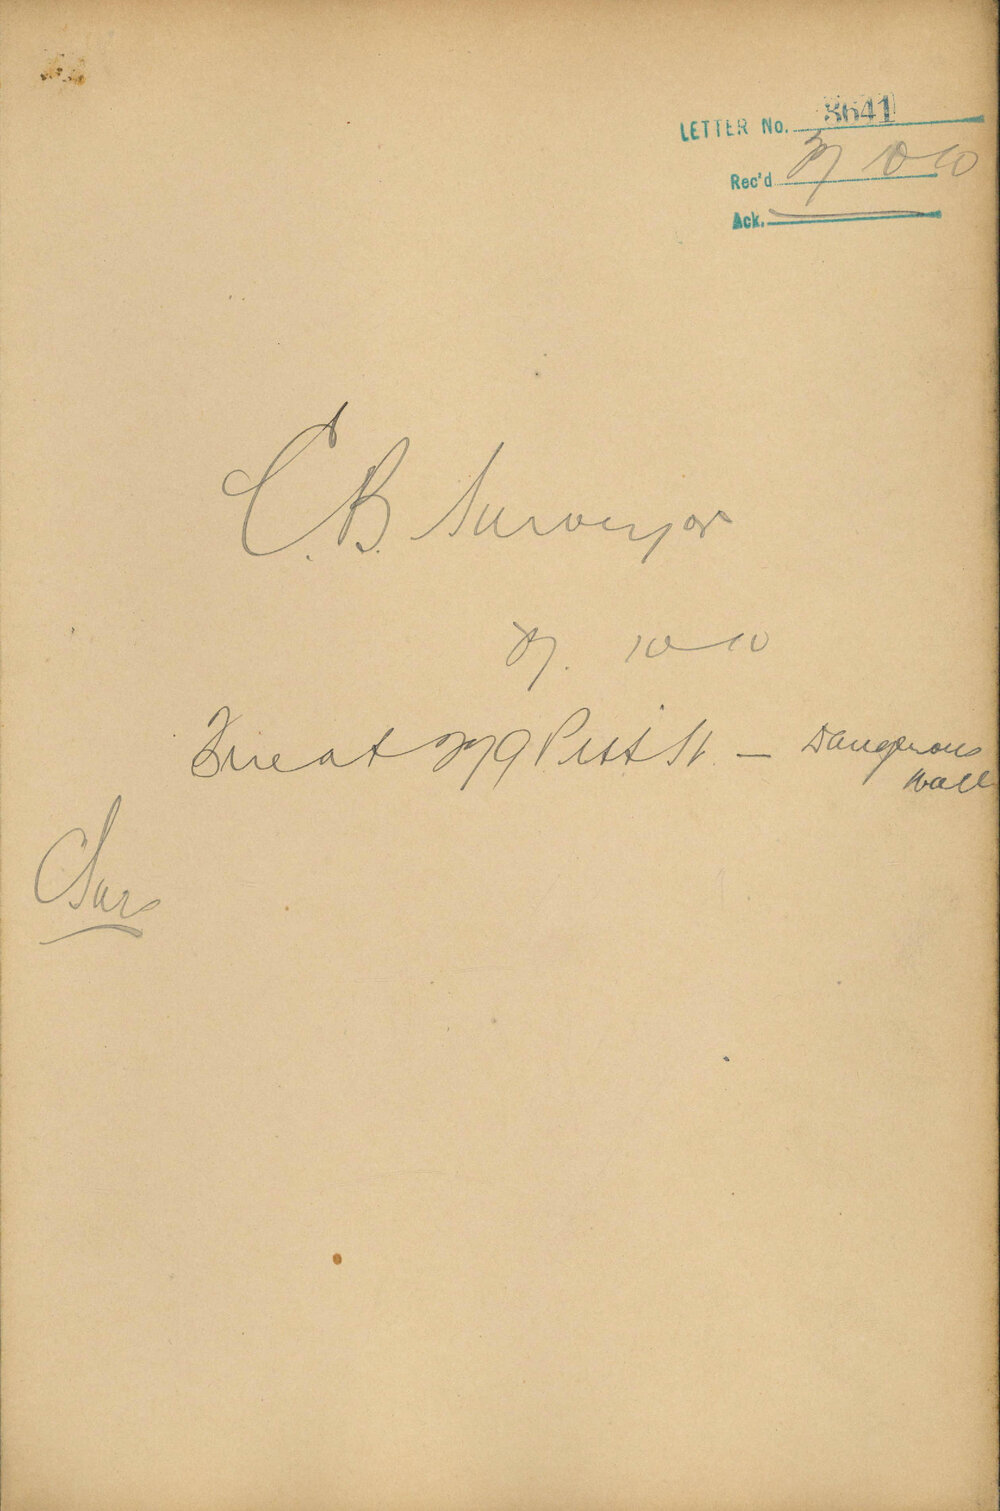 LETTER No. 3641
Rec'd 27 10 10
Ack.
C.B. Surveyor
27. 10-10
Fire at 279 Pitt St — Dangerous
Wall
C Sur